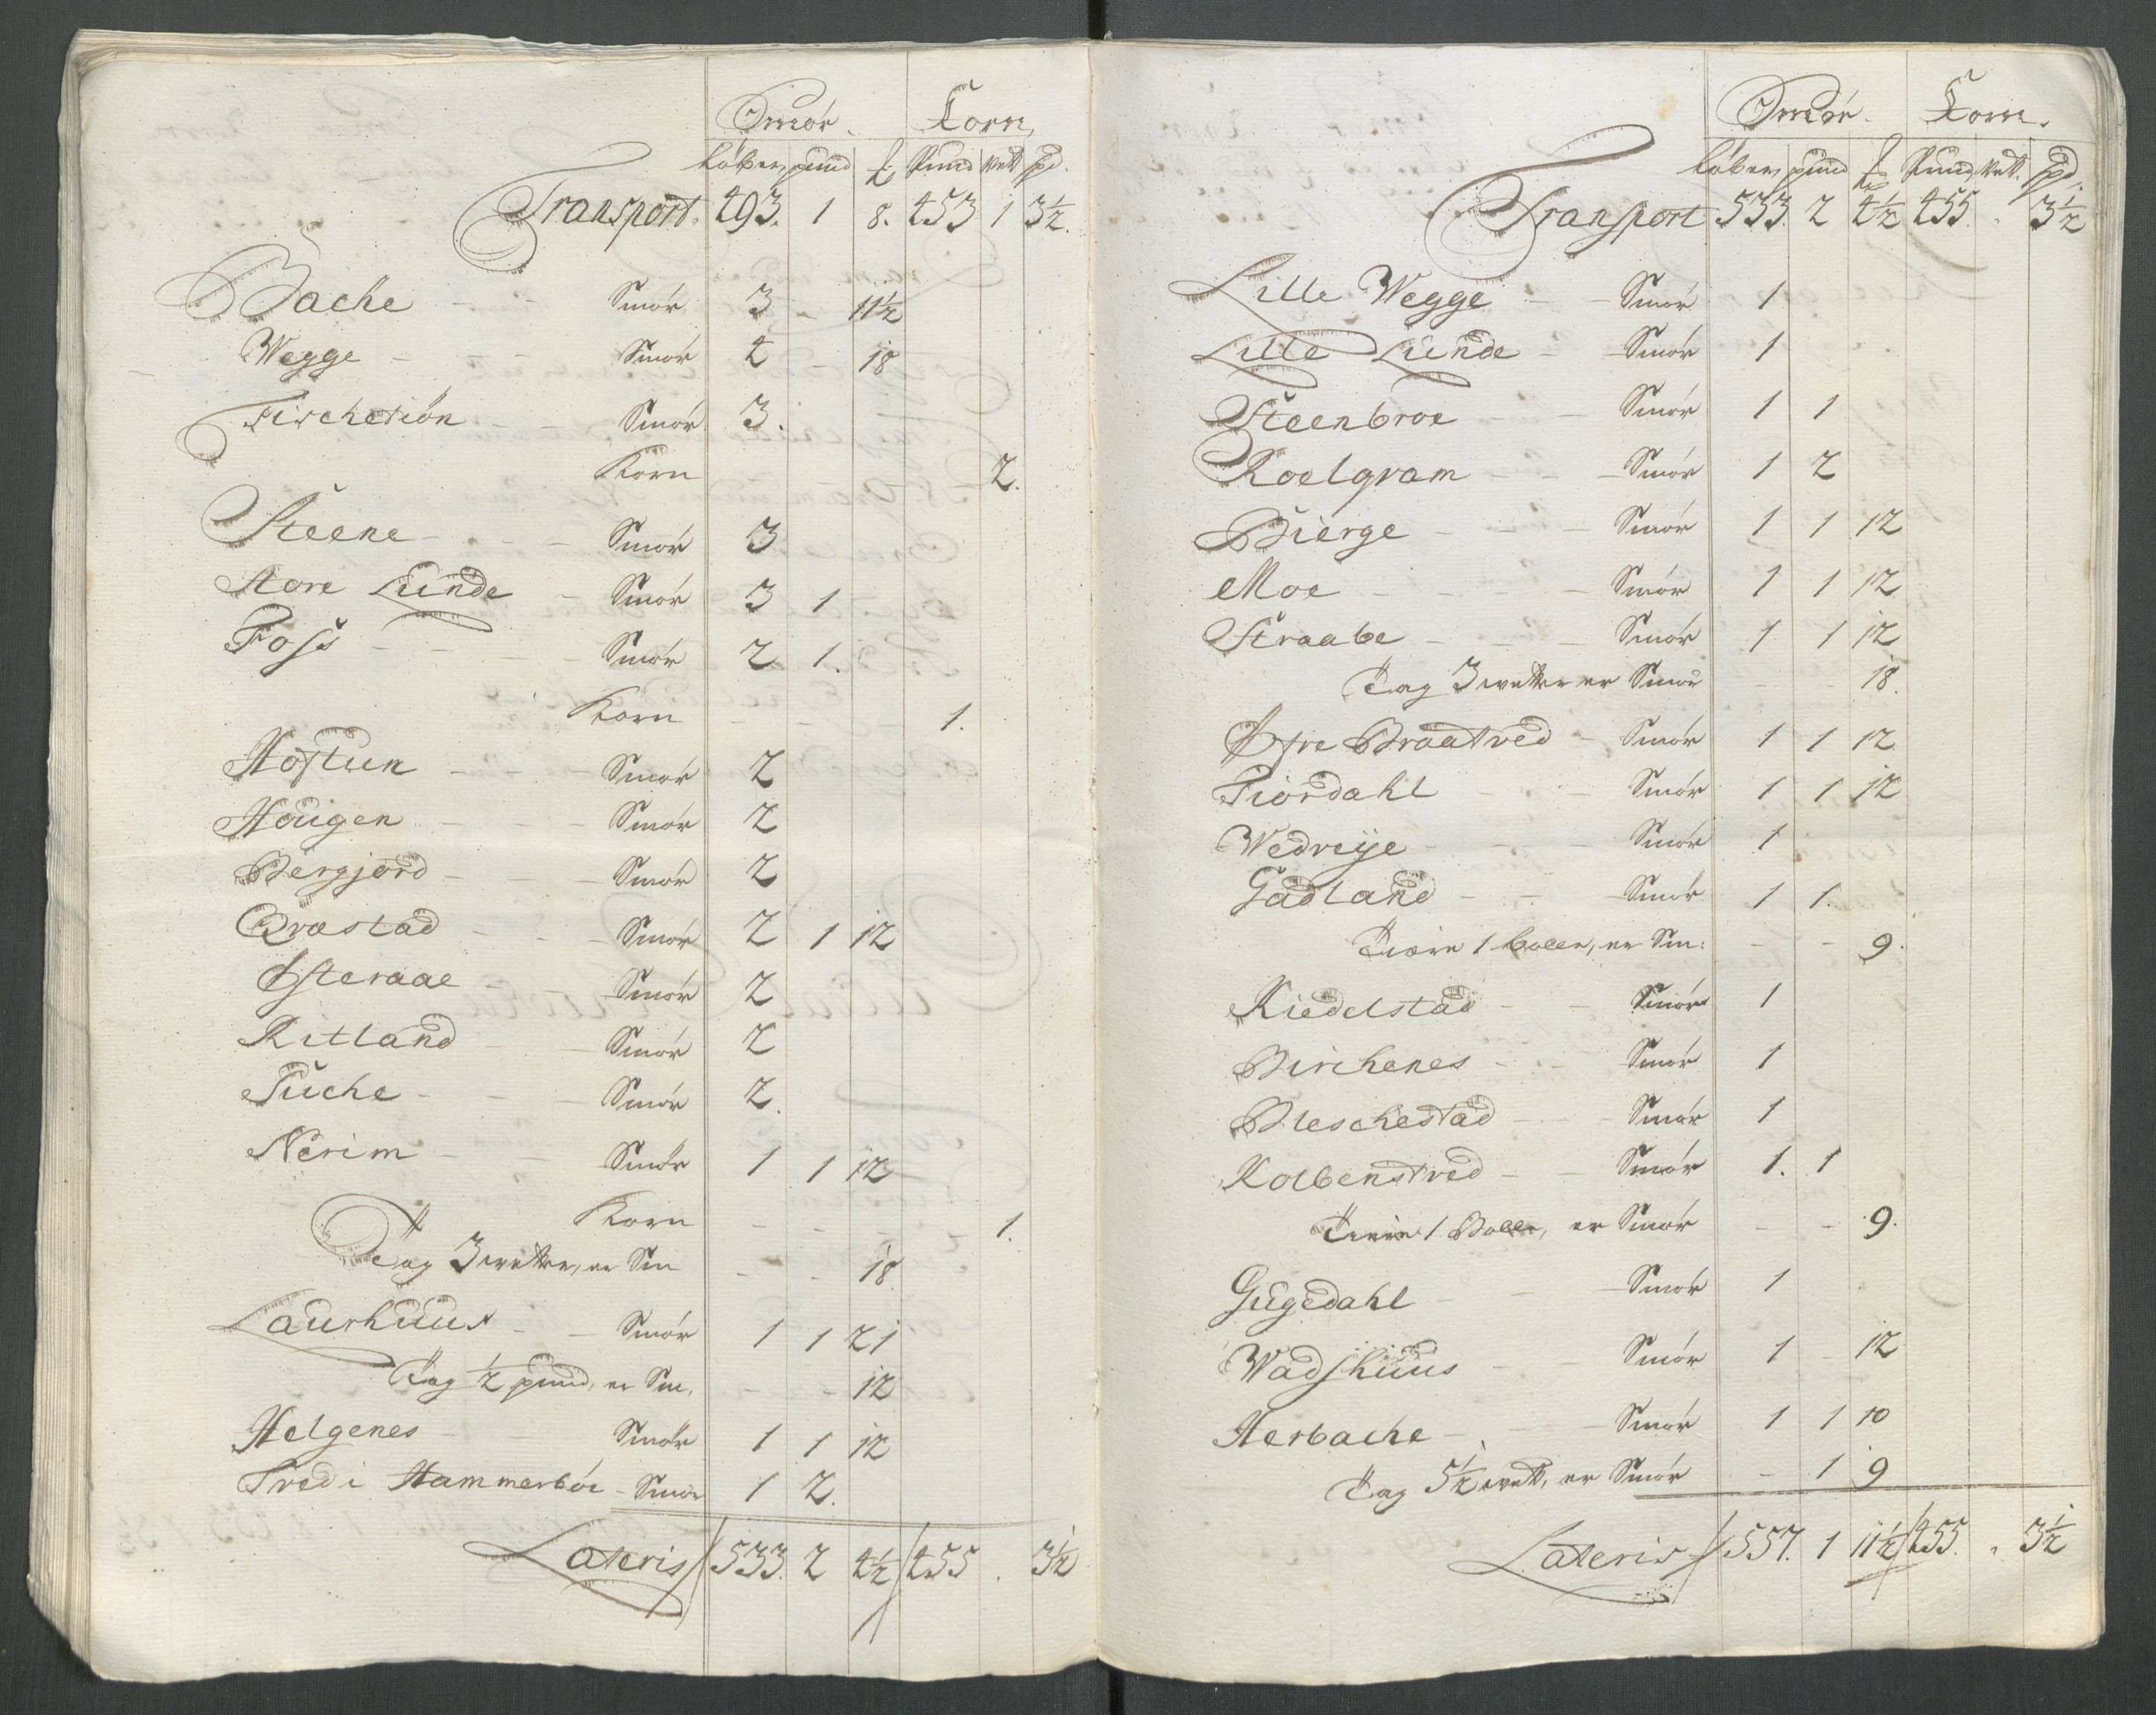 Smör. Korn,
Löber, pund ℔ Pund Wett spd.
Transport. 493. 1 8. 453 1 3½.
Bache - - Smör 3 - 11½
Wegge - - - Smör 4 - 18
Fischetiön - - Smör 3.
Korn 2.
Steene - - - Smör 3
Store Lunde - Smör 3 1
Foss - - - - Smör 2 1.
Korn - - - 1.
Hoftun - - - Smör 2
Hougen - - - Smör 2
Bergjord - - - Smör 2
Qvæstad - - - Smör 2 1 12
Østeraae - - Smör 2
Ritland - - Smör 2
Tuche - - - Smör 2.
Nerim - - Smör 1 1 12
Korn - - - - 1.
Tag 3 wetter, er Sm - - 18
Laurhuus - - Smör 1 1 21
Tag ½ pund, er Sm, - - 12
Helgenes - - Smör 1 1 12
Tved i Hammerböe - Smör 1 2.
Lateris 533. 2 4½ 455 . 3½
Smör. Korn.
Löber, pund ℔ Pund, Wett. spd.
Transport 533. 2 4½ 455. . 3½
Lille Wegge - - Smör 1
Lille Lunde - - Smör 1
Steenbroe - - Smör 1 1
Roelgvam - - Smör 1 2
Bierge - - - Smör 1 1 12
Moe - - - - Smör 1 1 12
Straabe - - - Smör 1 1 12
Tag 3 wetter er Smör - - 18.
Øfre Braatved - Smör 1 1 12
Fiordahl - - - Smör 1 1 12
Wedreije - - - Smör 1
Gadland - - - Smör 1 1.
Tiære 1 Boller, er Sm: - - 9.
Kiedelstad - - Smör 1
Birchenes - - Smör 1
Bleschestad - - Smör 1
Kolbenstved - - Smör 1. 1
Tiære 1 Boller, er Smör - - 9.
Gugedahl - - Smör 1
Wadshuus - - Smör 1 12
Herbache - - - Smör 1 1 10
Tag 5½ wett, er Smör - 1 9
Lateris 557. 1 11½ 455. . 3½